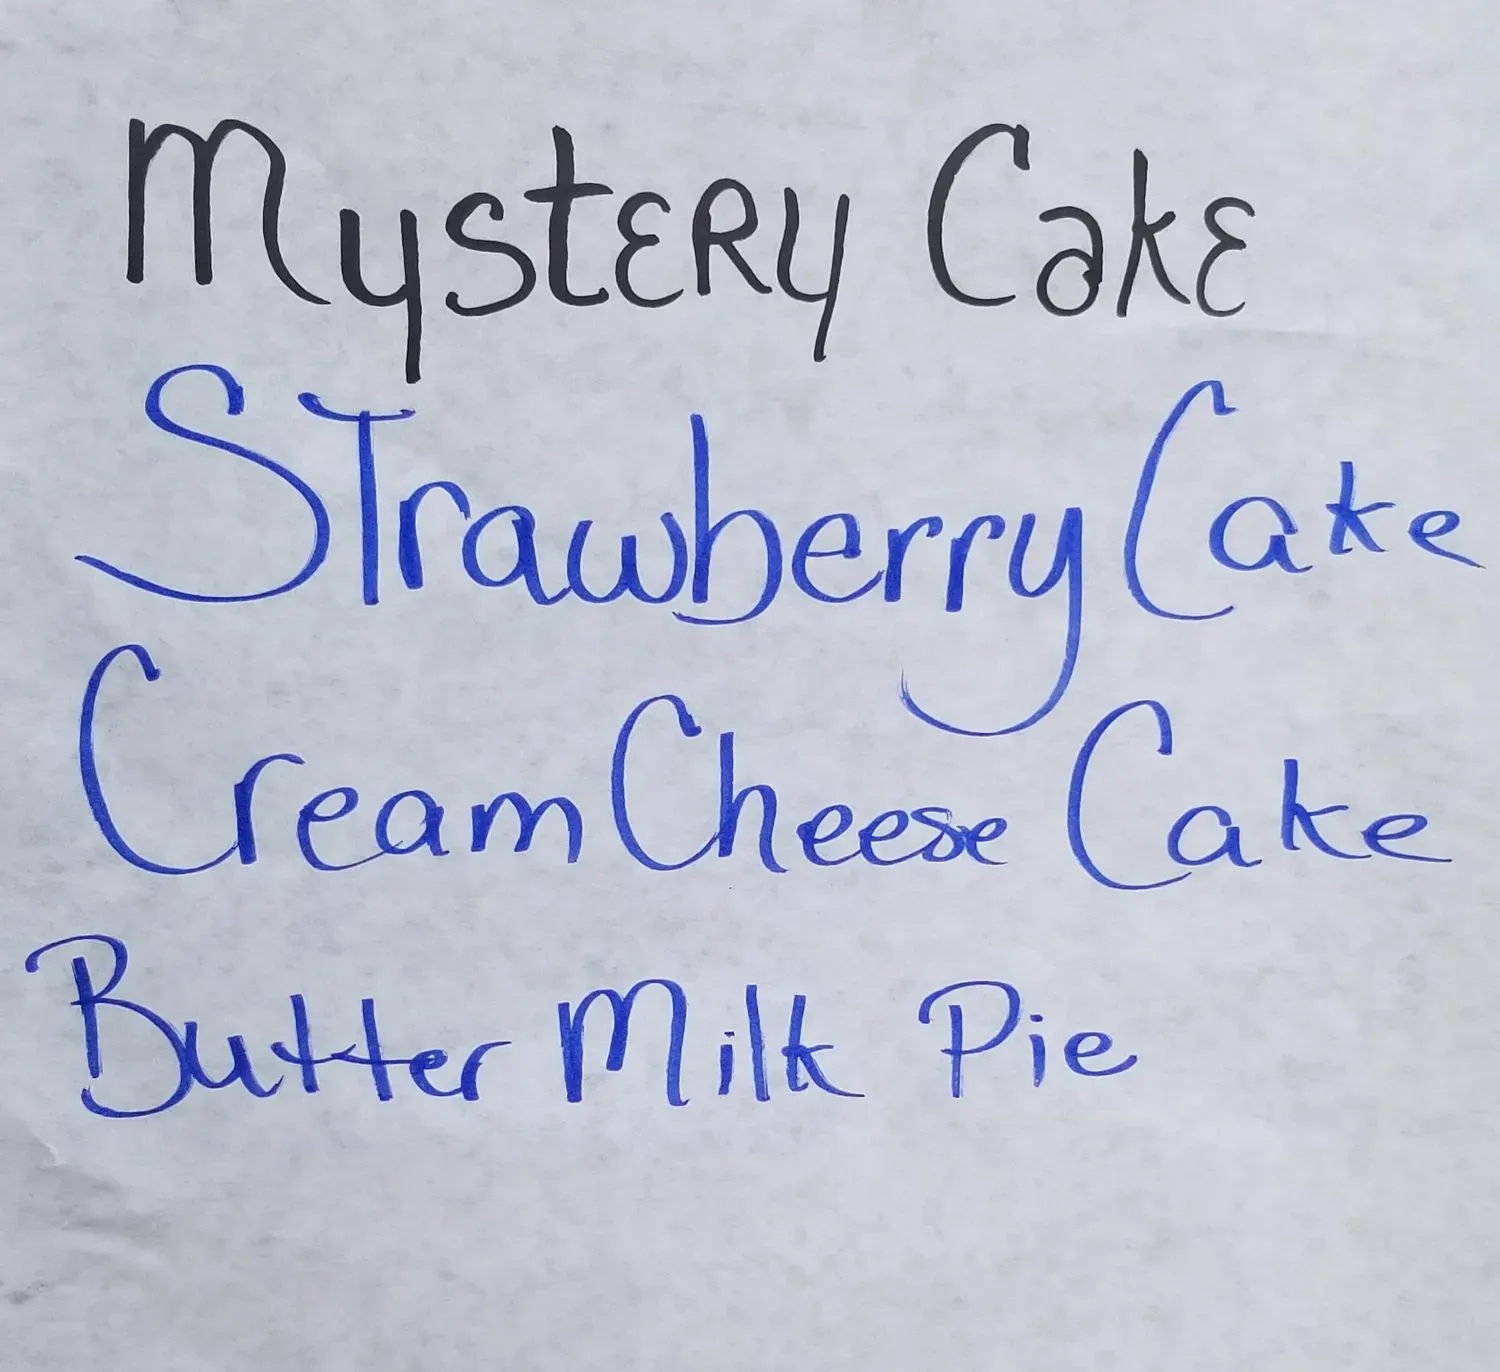 MystERy CakE
STrawberry Cake
Cream Cheese Cake
Butter Milk Pie